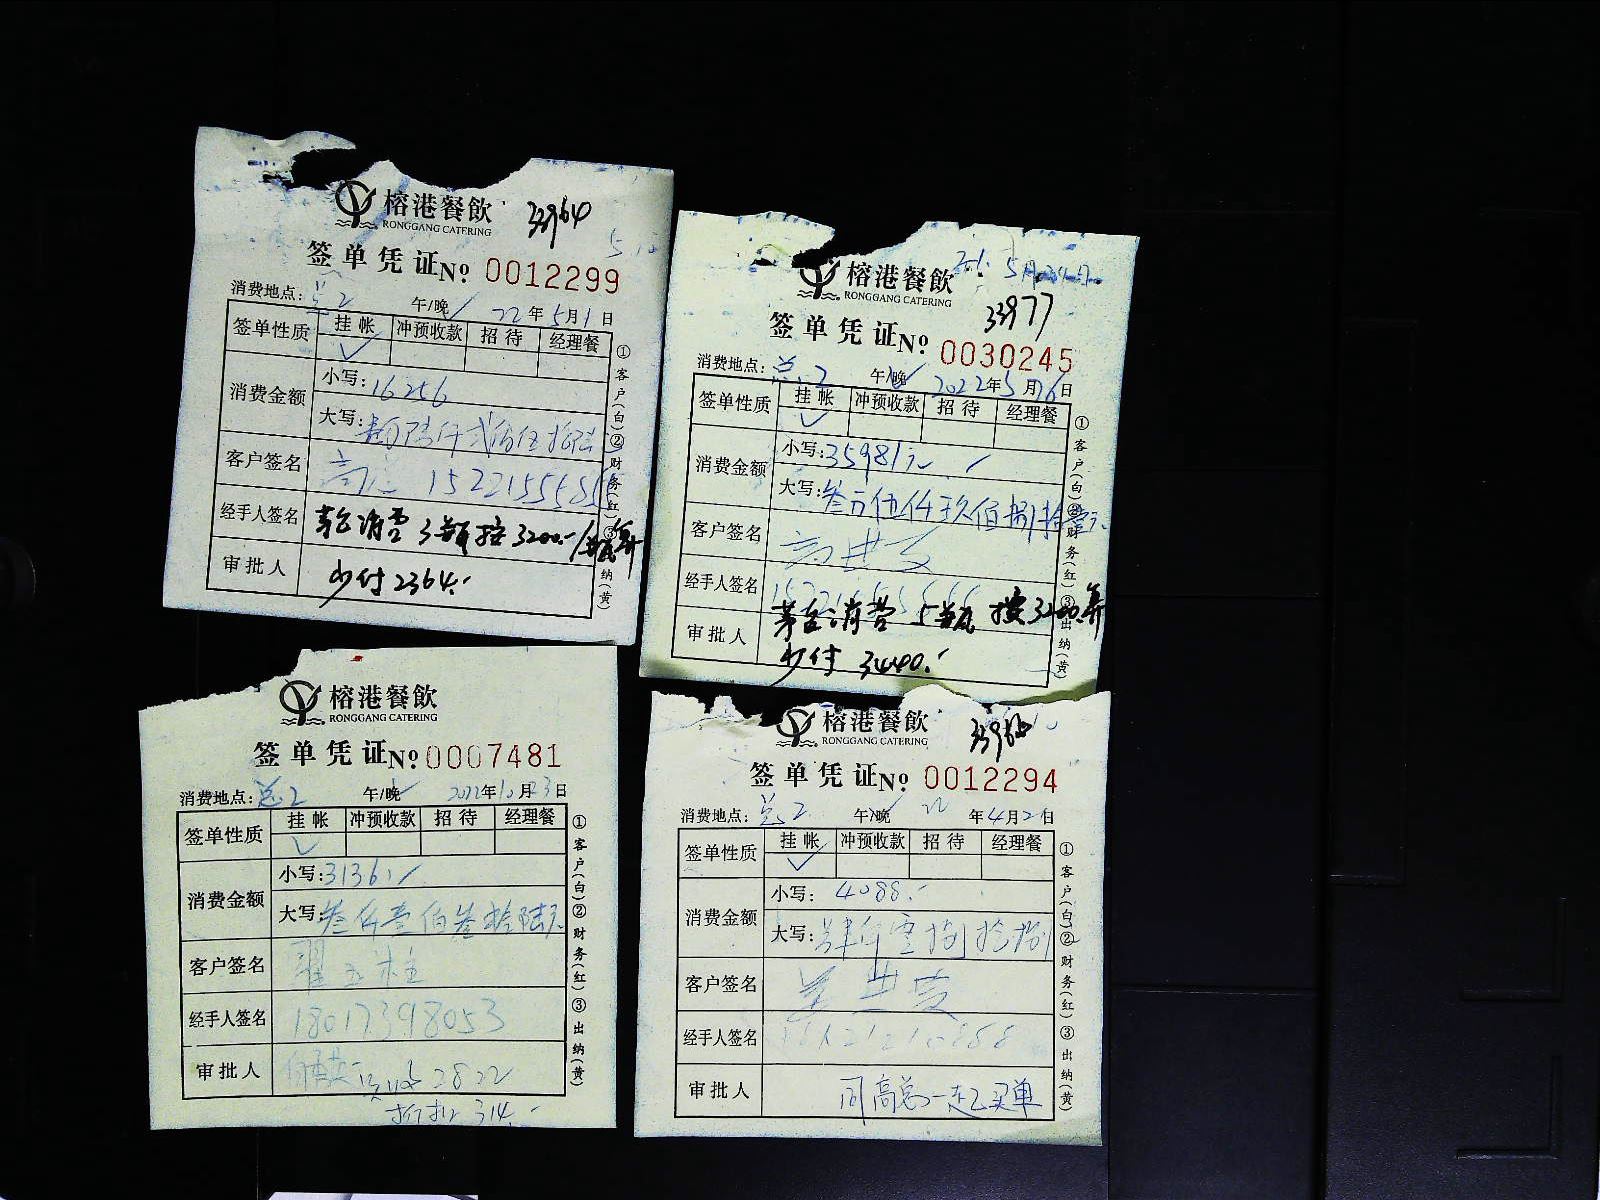 榕港餐飲
RONGGANG CATERING
33964
签单凭证 No 0012299
消费地点：总2 午/晚 22年5月1日
签单性质 挂帐 冲预收款 招待 经理餐
消费金额
小写：16256
大写：
客户签名 15221555555
经手人签名
茅台消费3瓶按3200./瓶算
审批人
少付2364.
①客户(白)②财务(红)③出纳(黄)
榕港餐飲
RONGGANG CATERING
33977
签单凭证 No 0030245
消费地点：总2 午/晚 2022年5月16日
签单性质 挂帐 冲预收款 招待 经理餐
消费金额
小写：35981元
大写：叁万伍仟玖佰捌拾壹元
客户签名 高进友
经手人签名
茅台消费5瓶按3200.算
审批人
少付3440.
①客户(白)②财务(红)③出纳(黄)
榕港餐飲
RONGGANG CATERING
签单凭证 No 0007481
消费地点：总2 午/晚 2022年10月23日
签单性质 挂帐 冲预收款 招待 经理餐
消费金额
小写：3136.
大写：叁仟壹佰叁拾陆元
客户签名 翟玉柱
经手人签名 18017398053
审批人 2822
折扣 314.
①客户(白)②财务(红)③出纳(黄)
榕港餐飲
RONGGANG CATERING
签单凭证 No 0012294
消费地点：总2 午/晚 22年4月21日
签单性质 挂帐 冲预收款 招待 经理餐
消费金额
小写：4088.
大写：肆仟零捌拾捌
客户签名
经手人签名
审批人 同高总一起买单
①客户(白)②财务(红)③出纳(黄)